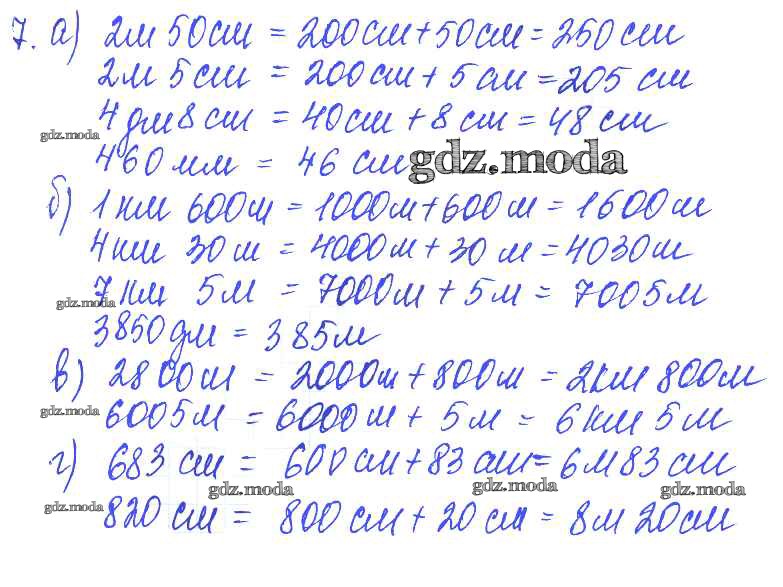 7. а) 2м 50см = 200см + 50см = 250 см
2м 5 см = 200см + 5 см = 205 см
4 дм 8 см = 40см + 8 см = 48 см
gdz.moda
460 мм = 46 см gdz.moda
б) 1 км 600м = 1000м + 600 м = 1600м
4км 30 м = 4000м + 30 м = 4030м
7 км 5м = 7000м + 5м = 7005м
gdz.moda
3850дм = 385м
в) 2800м = 2000м + 800м = 2км 800м
gdz.moda 6005м = 6000 м + 5м = 6 км 5м
г) 683 см = 600 см + 83 см = 6м 83 см
gdz.moda gdz.moda gdz.moda
gdz.moda 820 см = 800 см + 20 см = 8м 20см